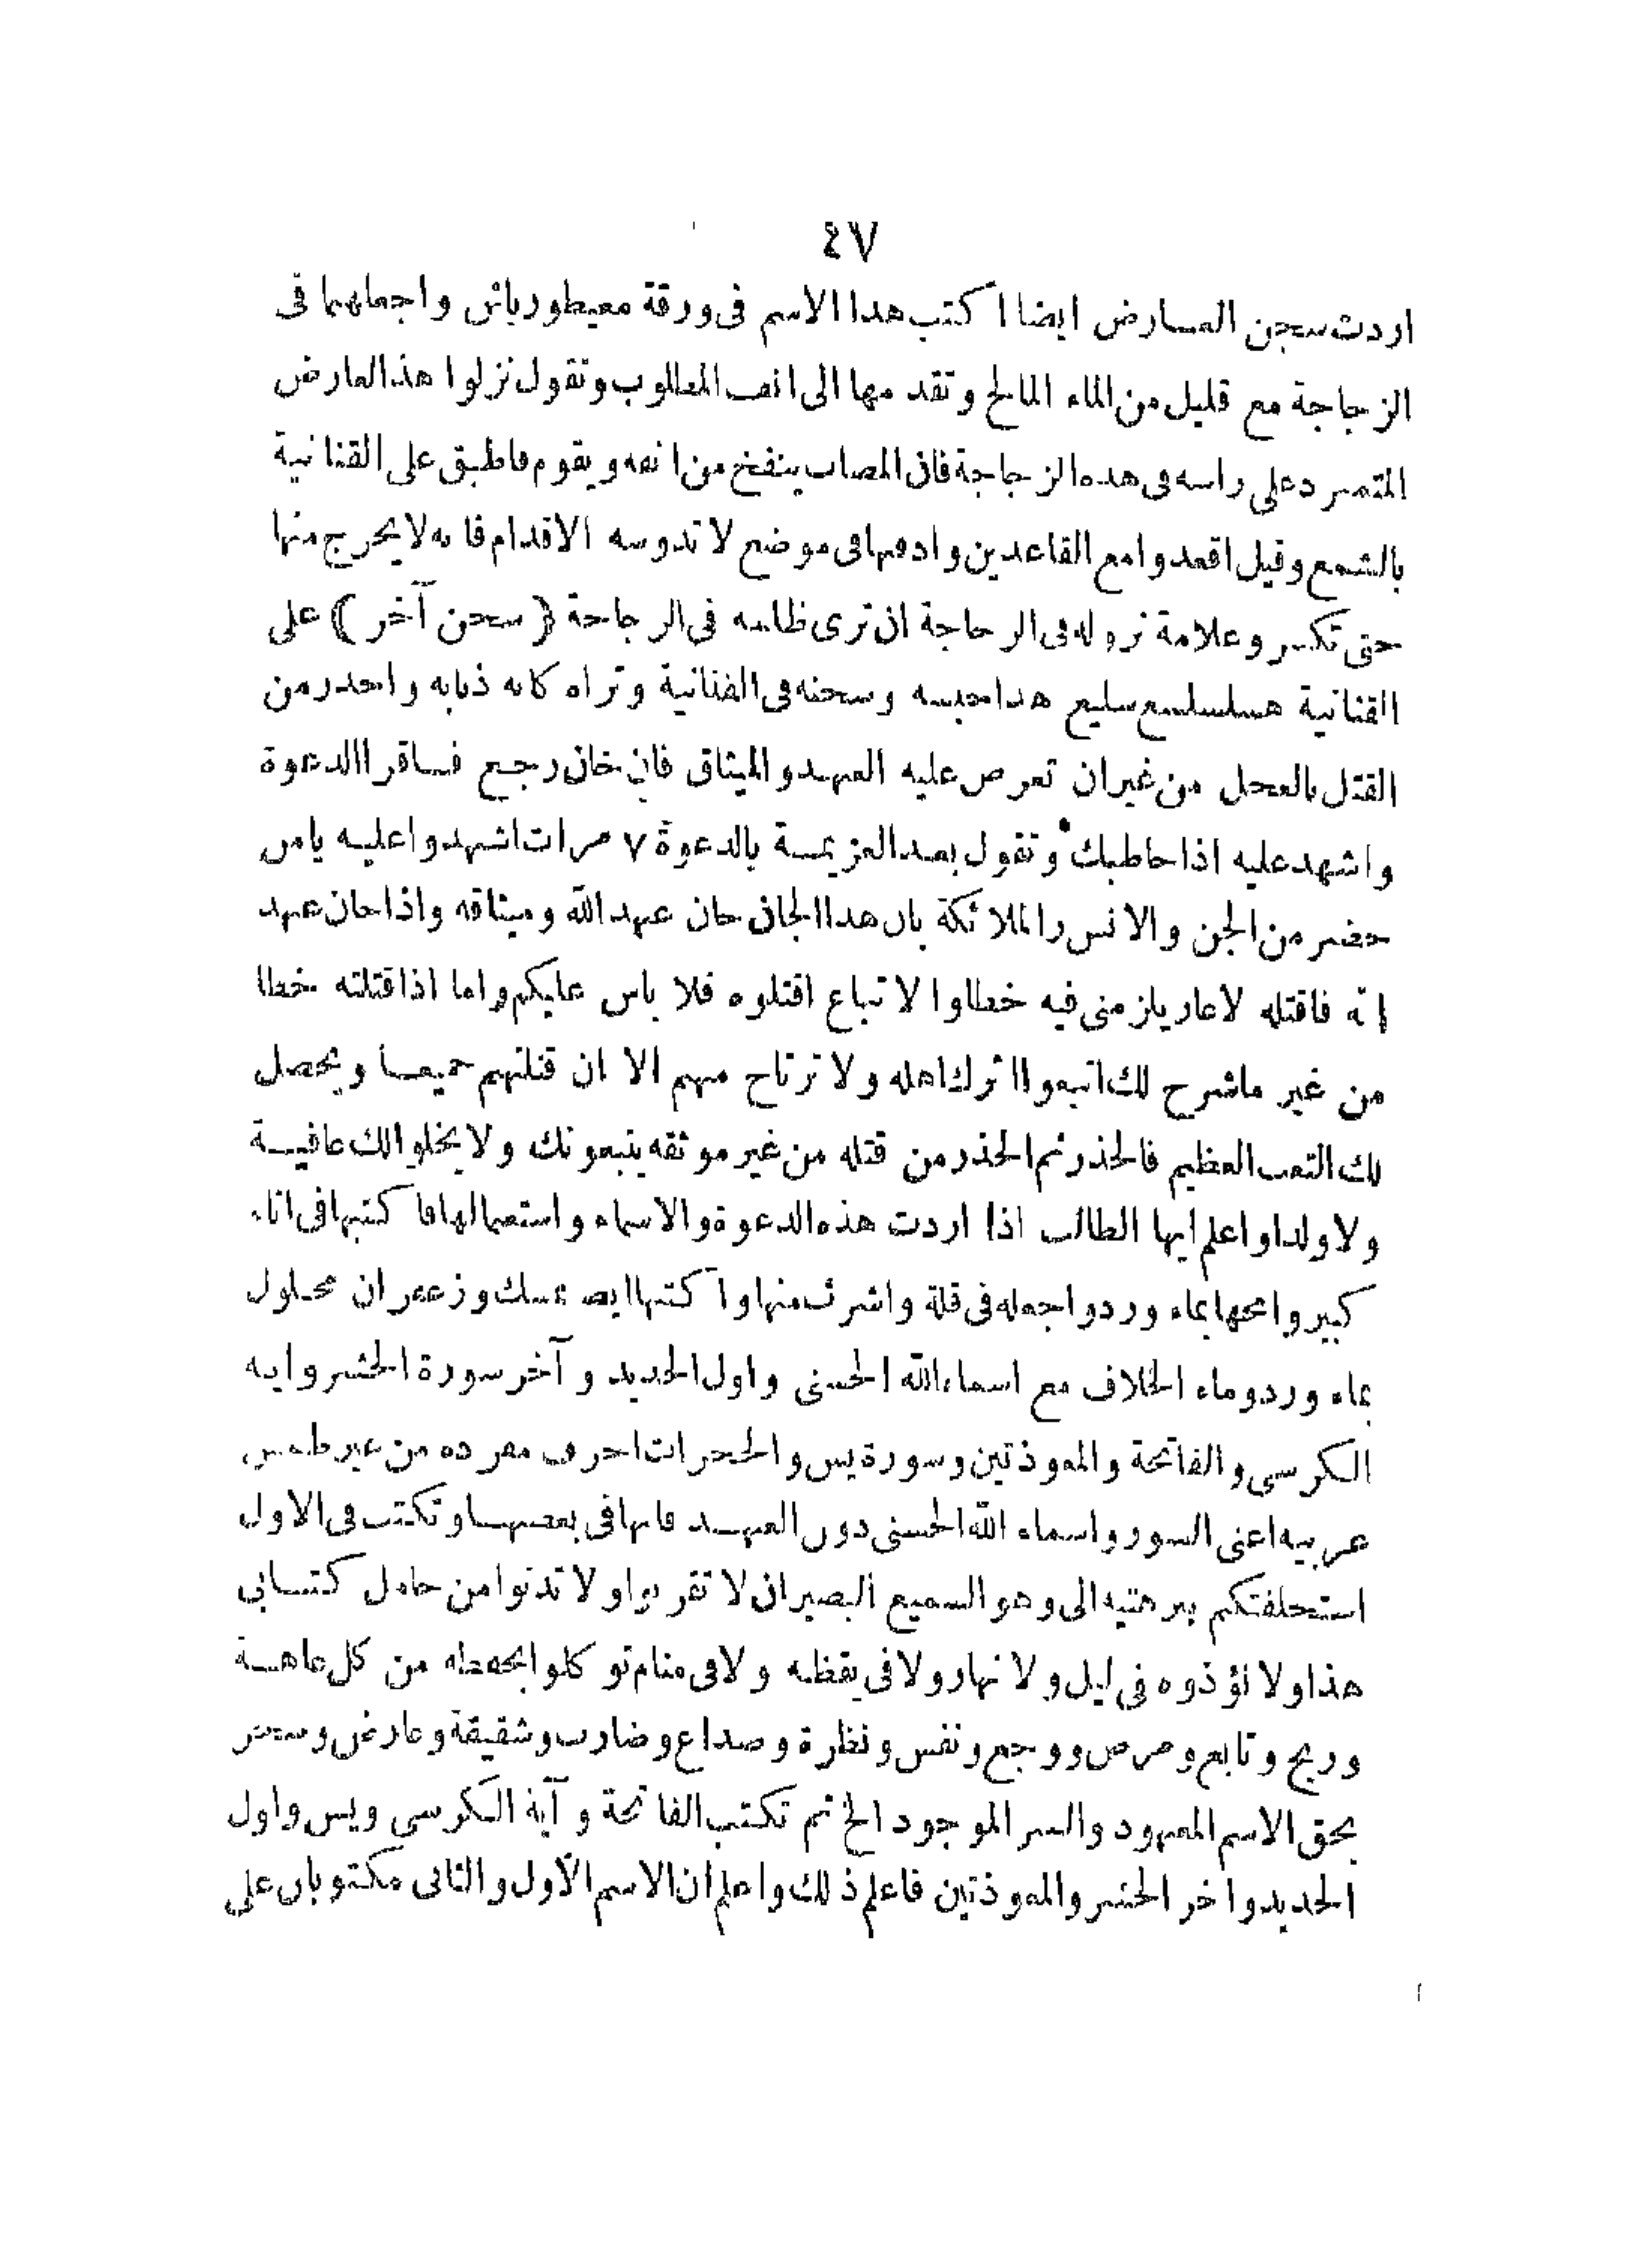 ٤٧
اردت سجن العارض ايضا اكتب هذا الاسم فى ورقة معيطورياش واجعلهما فى
الزجاجة مع قليل من الماء المالح وتقدمها الى انف المطلوب وتقول نزلوا هذ العارض
المتمرد على راسه فى هذه الزجاجة فان المصاب ينفخ من انفه ويقوم فاطبق على القنانية
بالشمع وقيل اقعدوا مع القاعدين وادفنها فى موضع لا تدوسه الاقدام فانه لا يخرج منها
حتى تكسر وعلامة نزوله فى الزجاجة ان ترى ظلمه فى الزجاجة (سجن آخر) على
القنانية هسلسلسع سليع هذا حبسه وسجنه فى القنانية وتراه كانه ذبابه واحذر من
القتل بالعجل من غير ان تعرض عليه العهد والميثاق فان خان رجع فاقرا الدعوة
واشهد عليه اذا خاطبك وتقول بعد العزيمة بالدعوة ٧ مرات اشهدوا عليه يا من
حضر من الجن والانس والملائكة بان هذا الجان خان عهد الله وميثاقه واذا خان عهد
الله فاقتله لا عار يلزمنى فيه خطاوا لا تباع اقتلوه فلا باس عليكم واما اذا قتلته خطا
من غير ماشرح لك اتبعوا اثرك اهله ولا ترتاح منهم الا ان قتلتهم جميعا ويحصل
لك التعب العظيم فالحذر ثم الحذر من قتله من غير موثقه يتبعونك ولا يخلوا لك عافية
ولا ولدا واعلم ايها الطالب اذا اردت هذه الدعوة والاسماء واستعمالها فاكتبها فى اناء
كبير وامحها بماء ورد واجعله فى قلة واشرب منها واكتبها ايضا بمسك وزعفران محلول
بماء ورد وماء الخلاف مع اسماء الله الحسنى واول الحديد وآخر سورة الحشر وايه
الكرسى والفاتحة والمعوذتين وسورة يس والحجرات احرف مفرده من غير طمس
عربيه اعنى السور واسماء الله الحسنى دون العهد فانها فى بعضها وتكتب فى الاول
استحلفتكم ببرهتيه الى وهو السميع البصير ان لا تقربوا ولا تدنوا من حامل كتابى
هذا ولا تؤذوه فى ليل ولا نهار ولا فى يقظه ولا فى منام توكلوا بحفظه من كل عاهة
وريح وتابع ومرض ووجع ونفس ونظرة وصداع وضارب وشقيقة وعارض وسحر
بحق الاسم المعهود والسر الموجود الخ ثم تكتب الفاتحة وآية الكرسى ويس واول
الحديد واخر الحشر والمعوذتين فاعلم ذلك واعلم ان الاسم الاول والثانى مكتوبان على